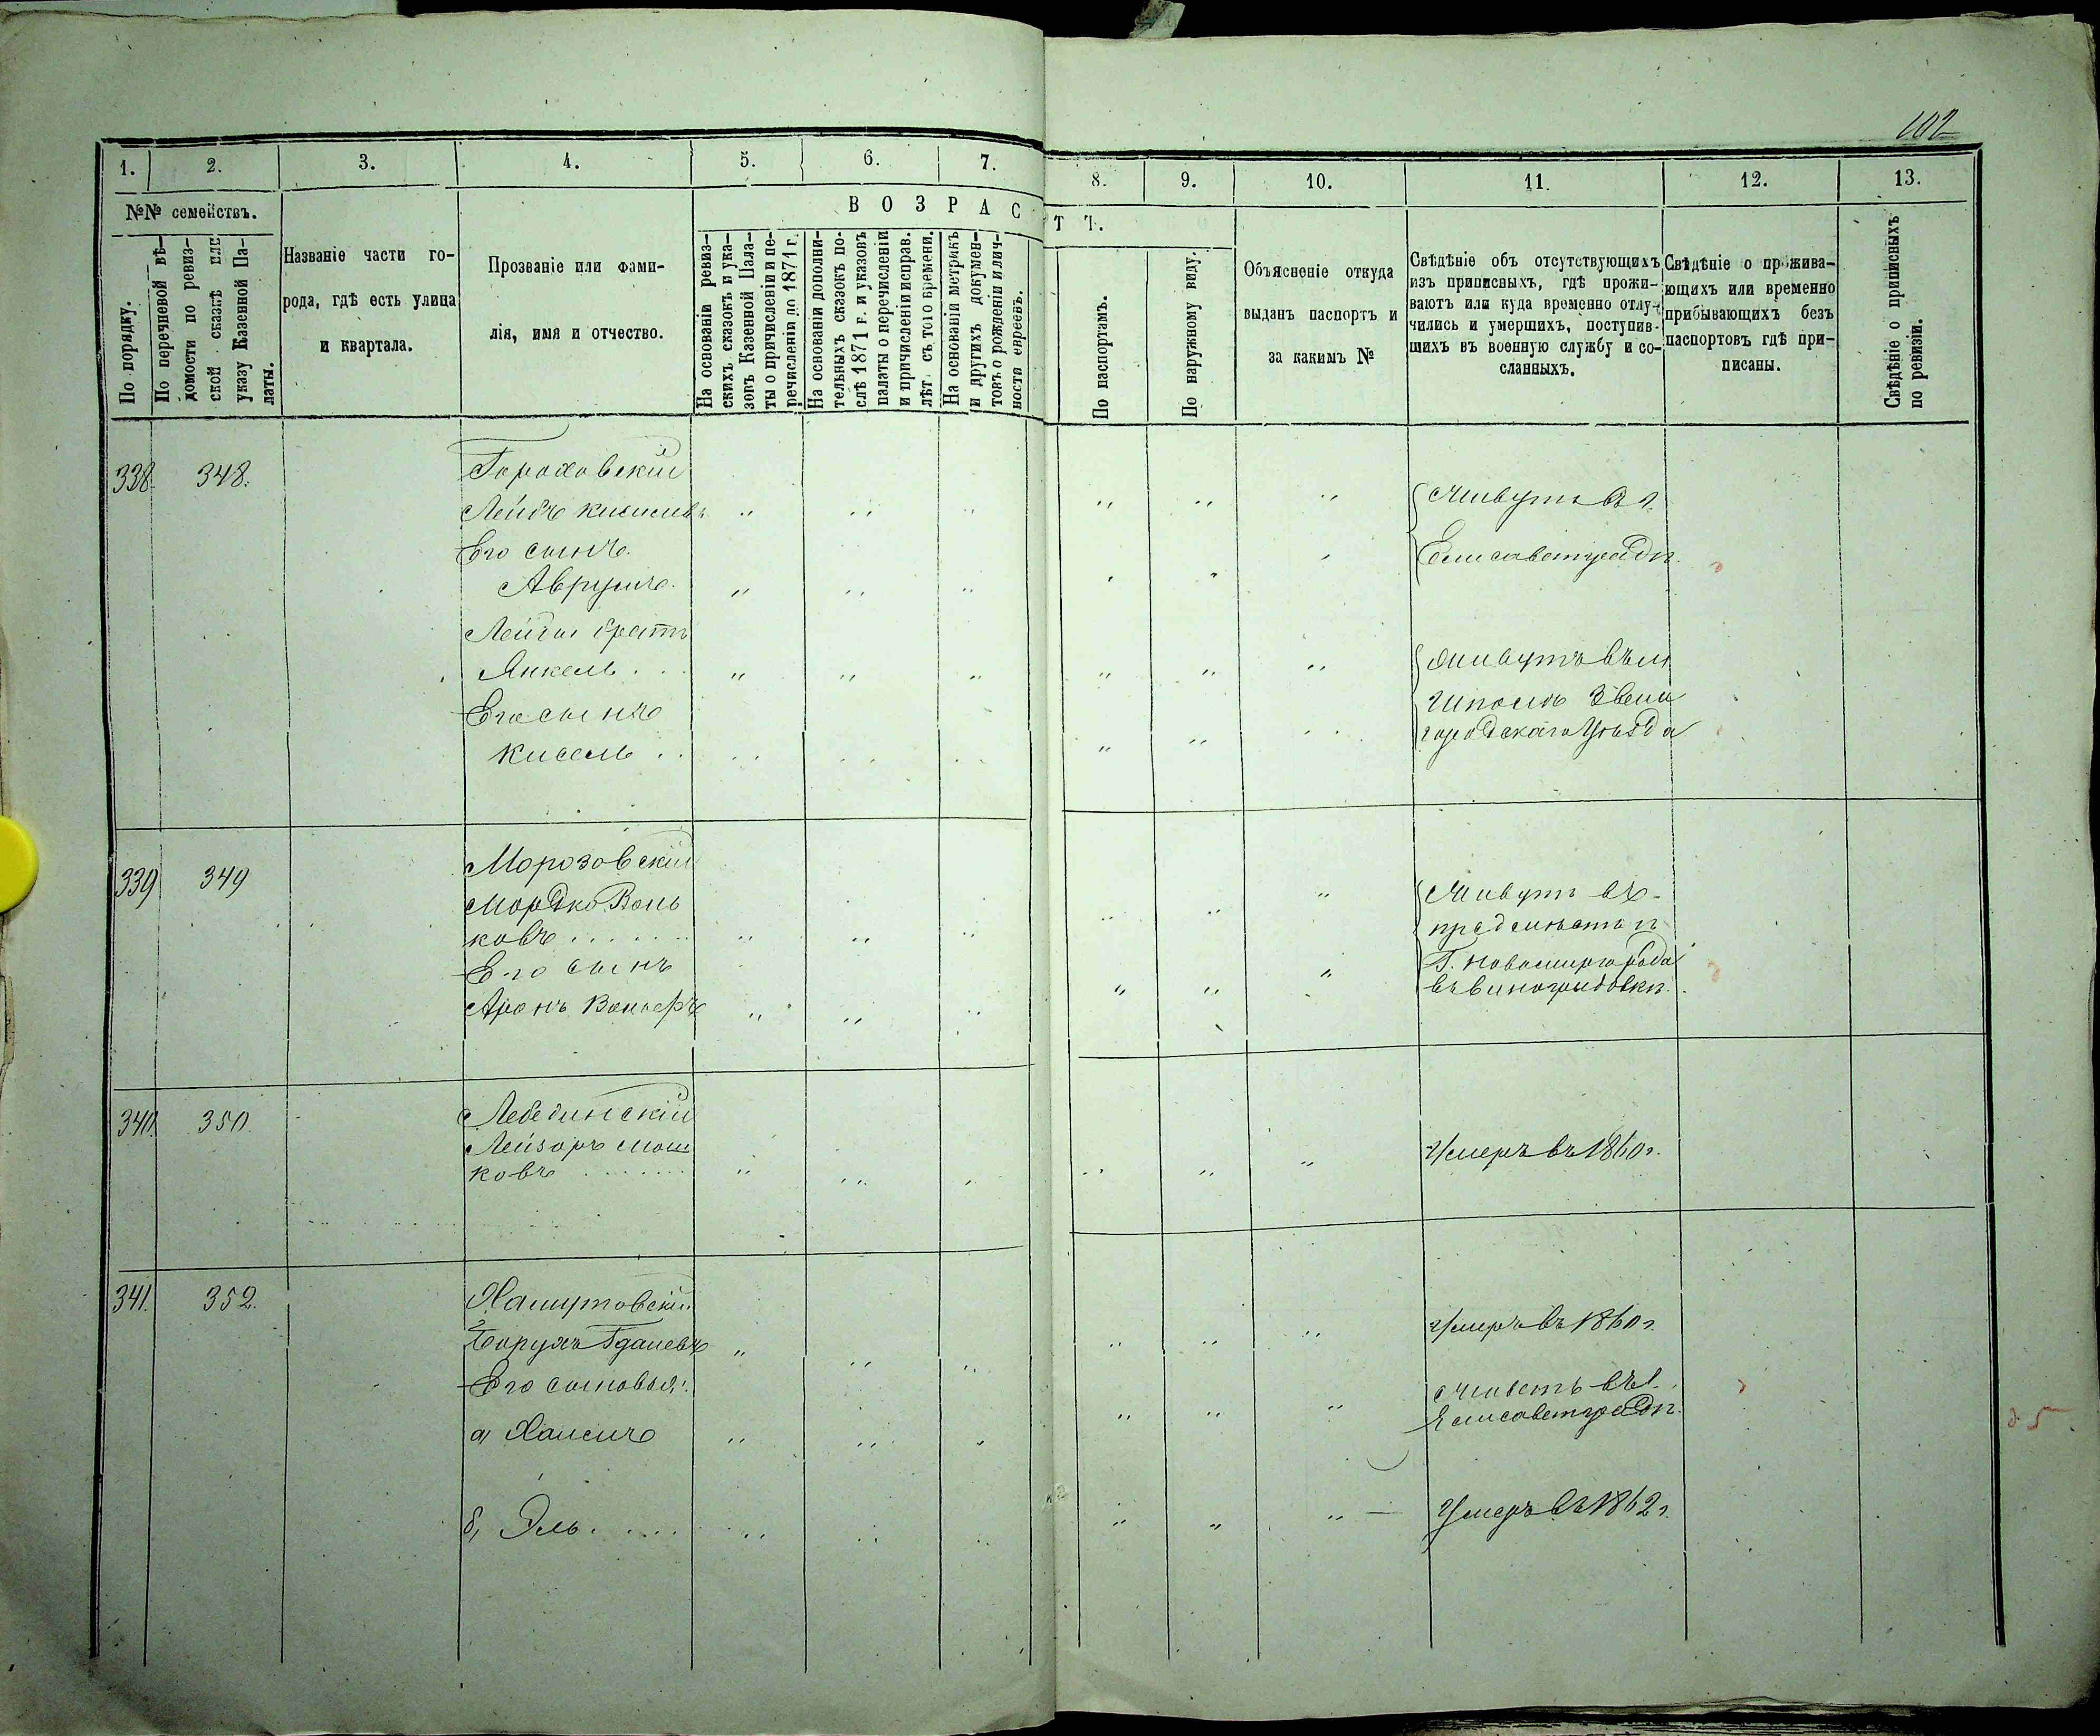 102
1. 2. 3. 4. 5. 6. 7. 8. 9. 10. 11. 12. 13.
№№ семействъ.
По порядку.
По перечневой вѣ-
домости по ревиз-
ской сказкѣ или
указу Казенной Па-
латы.
Названіе части го-
рода, гдѣ есть улица
и квартала.
Прозваніе или фами-
лія, имя и отчество.
ВОЗРАСТЪ.
На основаніи ревиз-
скихъ сказокъ и ука-
зовъ Казенной Пала-
ты о причисленіи и пе-
речисленіи до 1871 г.
На основаніи дополни-
тельныхъ сказокъ по-
слѣ 1871 г. и указовъ
палаты о перечисленіи
и причисленіи исправ.
лѣт. съ того времени.
На основаніи метрикъ
и другихъ докумен-
товъ о рожденіи и лич-
ности евреевъ.
По паспортамъ.
По наружному виду.
Объясненіе откуда
выданъ паспортъ и
за какимъ №
Свѣдѣніе объ отсутствующихъ
изъ приписныхъ, гдѣ прожи-
ваютъ или куда временно отлу-
чились и умершихъ, поступив-
шихъ въ военную службу и со-
сланныхъ.
Свѣдѣніе о прожива-
ющихъ или временно
прибывающихъ безъ
паспортовъ гдѣ при-
писаны.
Свѣдѣніе о приписныхъ
по ревизіи.
338. 348.
Гороховскій
Лейбъ Кисилевъ
Его сынъ
Аврумъ
Живутъ въ г.
Елисаветградѣ
Лейбы братъ
Янкель . . .
Его сынъ
Кисель . .
Живутъ въ м.
Шполѣ Звени
городскаго Уѣзда
339 349
Морозовскій
Мордко Воль
ковъ . . . . . .
Его сынъ
Аронъ
Живутъ въ
предмѣстьѣ
Г. Новомиргорода
въ Виноградовкѣ.
340. 350
Лебединскій
Лейзоръ Мош
ковъ . . . . . .
Умеръ въ 1860 г.
341. 352.
Борухъ Гдалевъ
Умеръ въ 1860 г.
Его сыновья:
а,
Живетъ въ г.
Елисаветградѣ.
б, Эль. . . . .
Умеръ въ 1862 г.